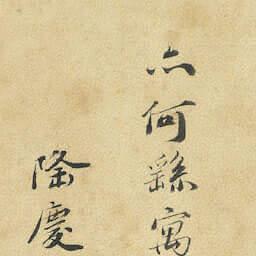 六何繇寓
隆慶